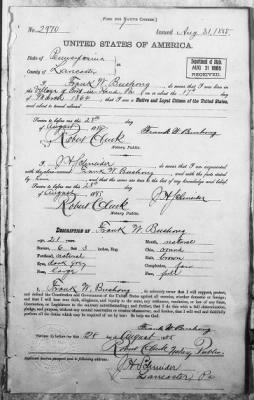 [FORM FOR NATIVE CITIZEN.]
No. 2970 Issued Aug 31, 1885
UNITED STATES OF AMERICA.
State of Pennsylvania
County of Lancaster
Department of State,
AUG 31 1885
RECEIVED.
I, Frank W. Bushong, do swear that I was born in the
Village of on or about the 17th day
of March 1864; that I am a Native and Loyal Citizen of the United States,
and about to travel abroad.
Sworn to before me this 28th day
of August 1885
Frank W. Bushong
Robert Clark
Notary Public.
I, J H Schneider, do swear that I am acquainted
with the above-named Frank W. Bushong, and with the facts stated
by him, and that the same are true to the best of my knowledge and belief.
Sworn to before me this 28th day
of August 1885
J H Schneider
Robert Clark
Notary Public.
DESCRIPTION OF Frank W. Bushong
Age, 21 Mouth, natural
Stature, 6 3 Chin, round
Forehead, natural Hair, brown
Eyes, dark grey Complexion, fair
Nose, large Face, full
I, Frank W. Bushong, do solemnly swear that I will support, protect,
and defend the Constitution and Government of the United States against all enemies, whether domestic or foreign;
and that I will bear true faith, allegiance, and loyalty to the same, any ordinance, resolution, or law of any State,
Convention, or Legislature to the contrary notwithstanding; and further, that I do this with a full determination,
pledge, and purpose, without any mental reservation or evasion whatsoever; and further, that I will well and faithfully
perform all the duties which may be required of me by law: So help me God.
Frank W Bushong
Sworn to before me this 28 day of August 1885
Robert Clark Notary Public.
Applicant desires passport sent to following address:
J H Schneider
Lancaster Pa